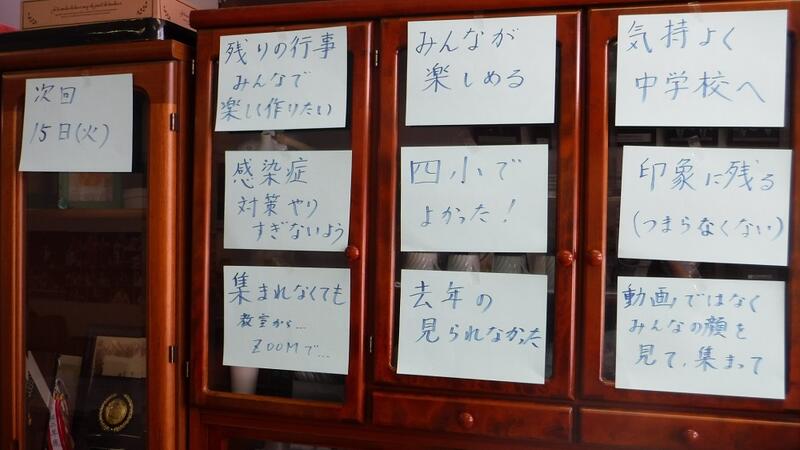 次回
15日(火)
残りの行事
みんなで
楽しく作りたい
感染症
対策やり
すぎないよう
集まれなくても
教室から…
ZOOMで…
みんなが
楽しめる
四小で
よかった!
去年の
見られなかった
気持よく
中学校へ
印象に残る
(つまらなくない)
動画ではなく
みんなの顔を
見て、集まって